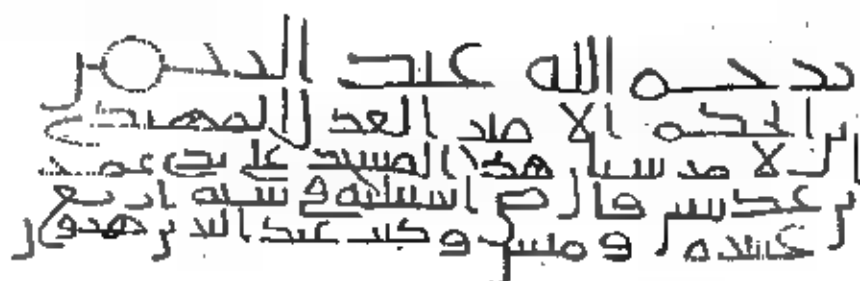 يرحم الله عبد الرحمن
بن الحكم الامير العدل المهتدي
الامر ببنيان هذا المسجد علي يدي عمر
بن عدبس قاضي اشبيلية في سنة اربع
عشرة ومئتين وكتب عبد البر بن هرون